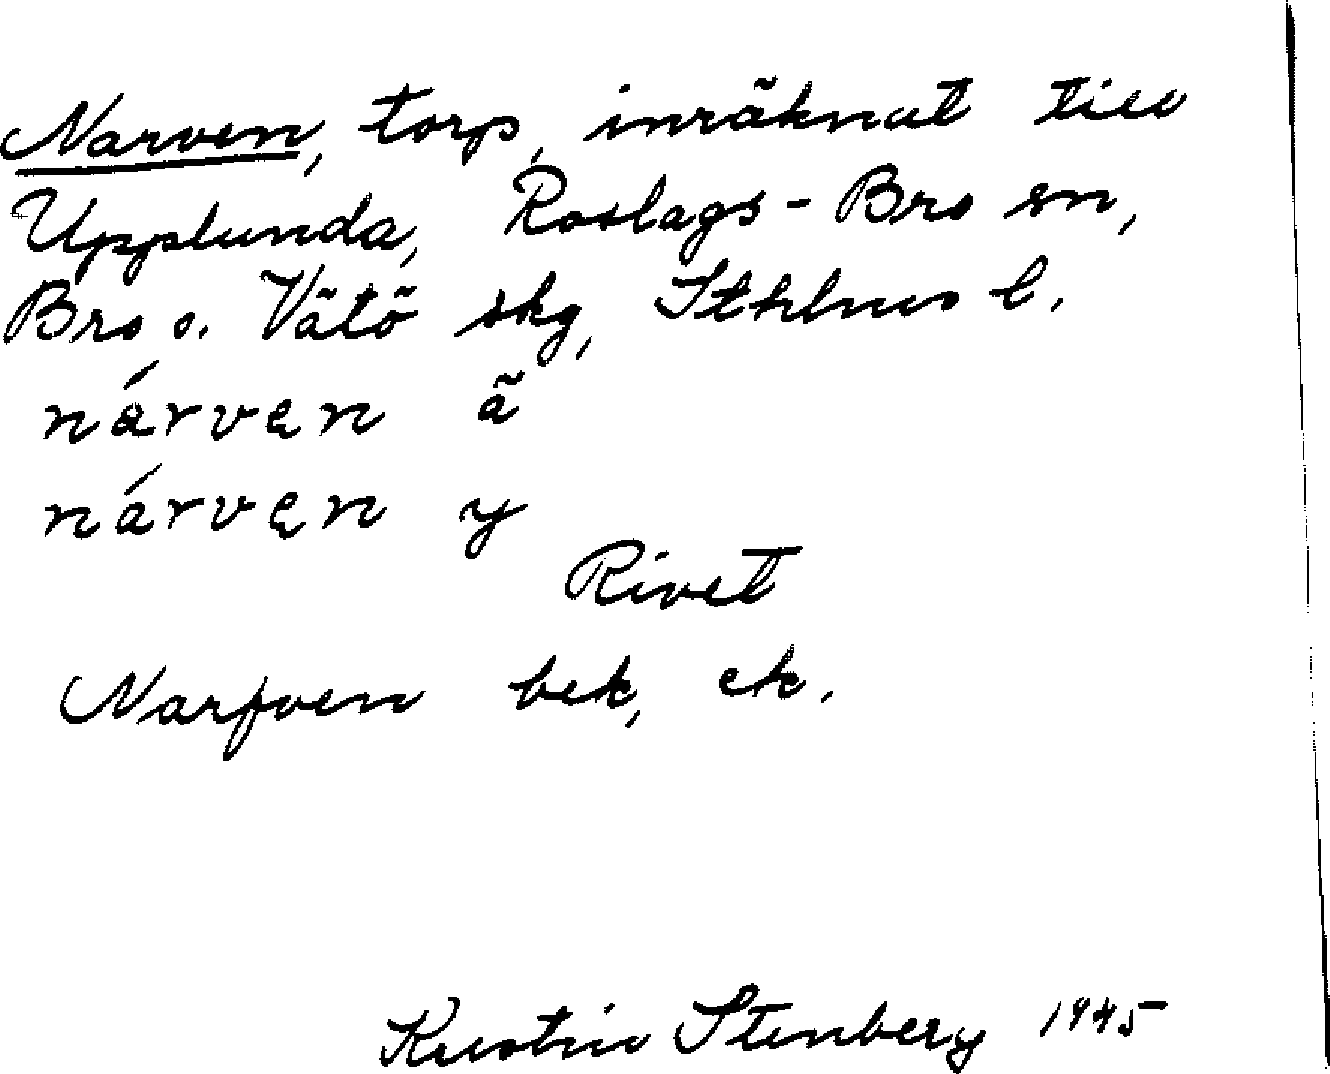 Narven, torp, inräknat till
Upplunda, Roslags-Bro sn,
Bro o. Vätö skg, Sthlms l.
nárvęn ä
nárvęn y
Rivet
Narfven bek, ek.
Kerstin Stenberg 1945